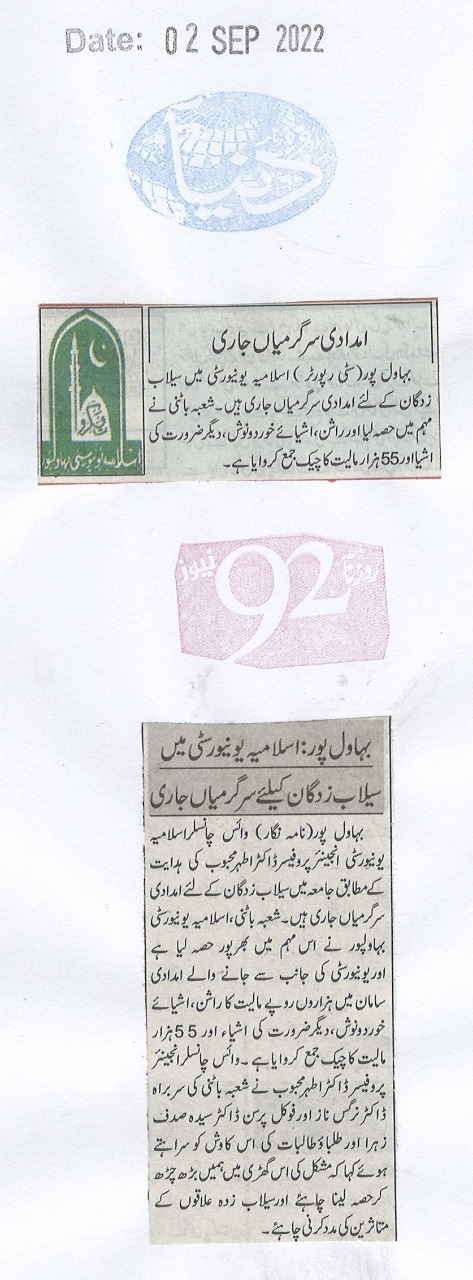 Date: 02 SEP 2022
دنیا
امدادی سرگرمیاں جاری
بہاول پور(سٹی رپورٹر) اسلامیہ یونیورسٹی میں سیلاب
زدگان کے لئے امدادی سرگرمیاں جاری ہیں۔ شعبہ باٹنی نے
مہم میں حصہ لیا اور راشن، اشیائے خوردونوش، دیگر ضرورت کی
اشیا اور 55 ہزار مالیت کا چیک جمع کروایا ہے۔
اسلامیہ یونیورسٹی بہاولپور
روزنامہ 92 نیوز
بہاول پور: اسلامیہ یونیورسٹی میں
سیلاب زدگان کیلئے سرگرمیاں جاری
بہاول پور(نامہ نگار) وائس چانسلر اسلامیہ
یونیورسٹی انجینئر پروفیسر ڈاکٹر اطہر محبوب کی ہدایت
کے مطابق جامعہ میں سیلاب زدگان کے لئے امدادی
سرگرمیاں جاری ہیں۔ شعبہ باٹنی، اسلامیہ یونیورسٹی
بہاولپور نے اس مہم میں بھرپور حصہ لیا ہے
اور یونیورسٹی کی جانب سے جانے والے امدادی
سامان میں ہزاروں روپے مالیت کا راشن، اشیائے
خوردونوش، دیگر ضرورت کی اشیاء اور 55 ہزار
مالیت کا چیک جمع کروایا ہے۔ وائس چانسلر انجینئر
پروفیسر ڈاکٹر اطہر محبوب نے شعبہ باٹنی کی سربراہ
ڈاکٹر نرگس ناز اور فوکل پرسن ڈاکٹر سیدہ صدف
زہرا اور طلباؤ طالبات کی اس کاوش کو سراہتے
ہوئے کہا کہ مشکل کی اس گھڑی میں ہمیں بڑھ چڑھ
کر حصہ لینا چاہئے اور سیلاب زدہ علاقوں کے
متاثرین کی مدد کرنی چاہئے۔